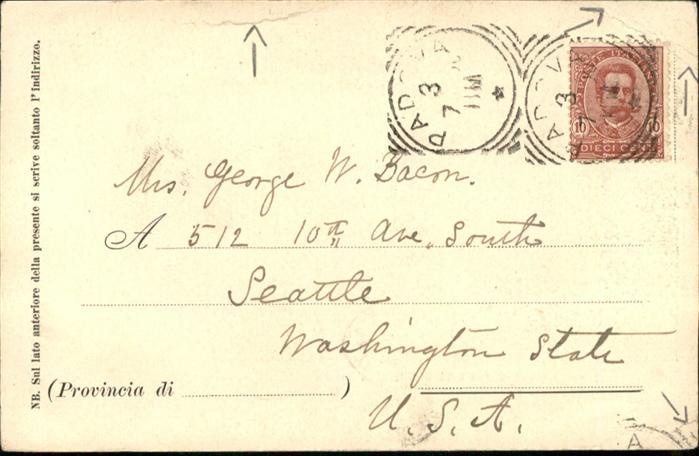 NB. Sul lato anteriore della presente si scrive soltanto l'indirizzo.
PADOVA
7 3
PADOVA
7 3
POSTE ITALIANE
10 10
DIECI CENT
Mrs. George W. Bacon.
A 512 10th Ave, South
Seattle
Washington State
(Provincia di )
U. S. A.
A